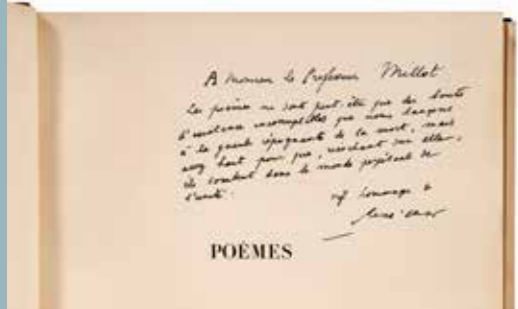 A Monsieur le Professeur Millot
Les poèmes ne sont peut-être que des bouts
d'existence incorruptibles que nous lançons
à la gueule répugnante de la mort, mais
assez haut pour que, ricochant sur elle,
ils tombent dans le monde
d'unité.
hommage
René Char
POÈMES